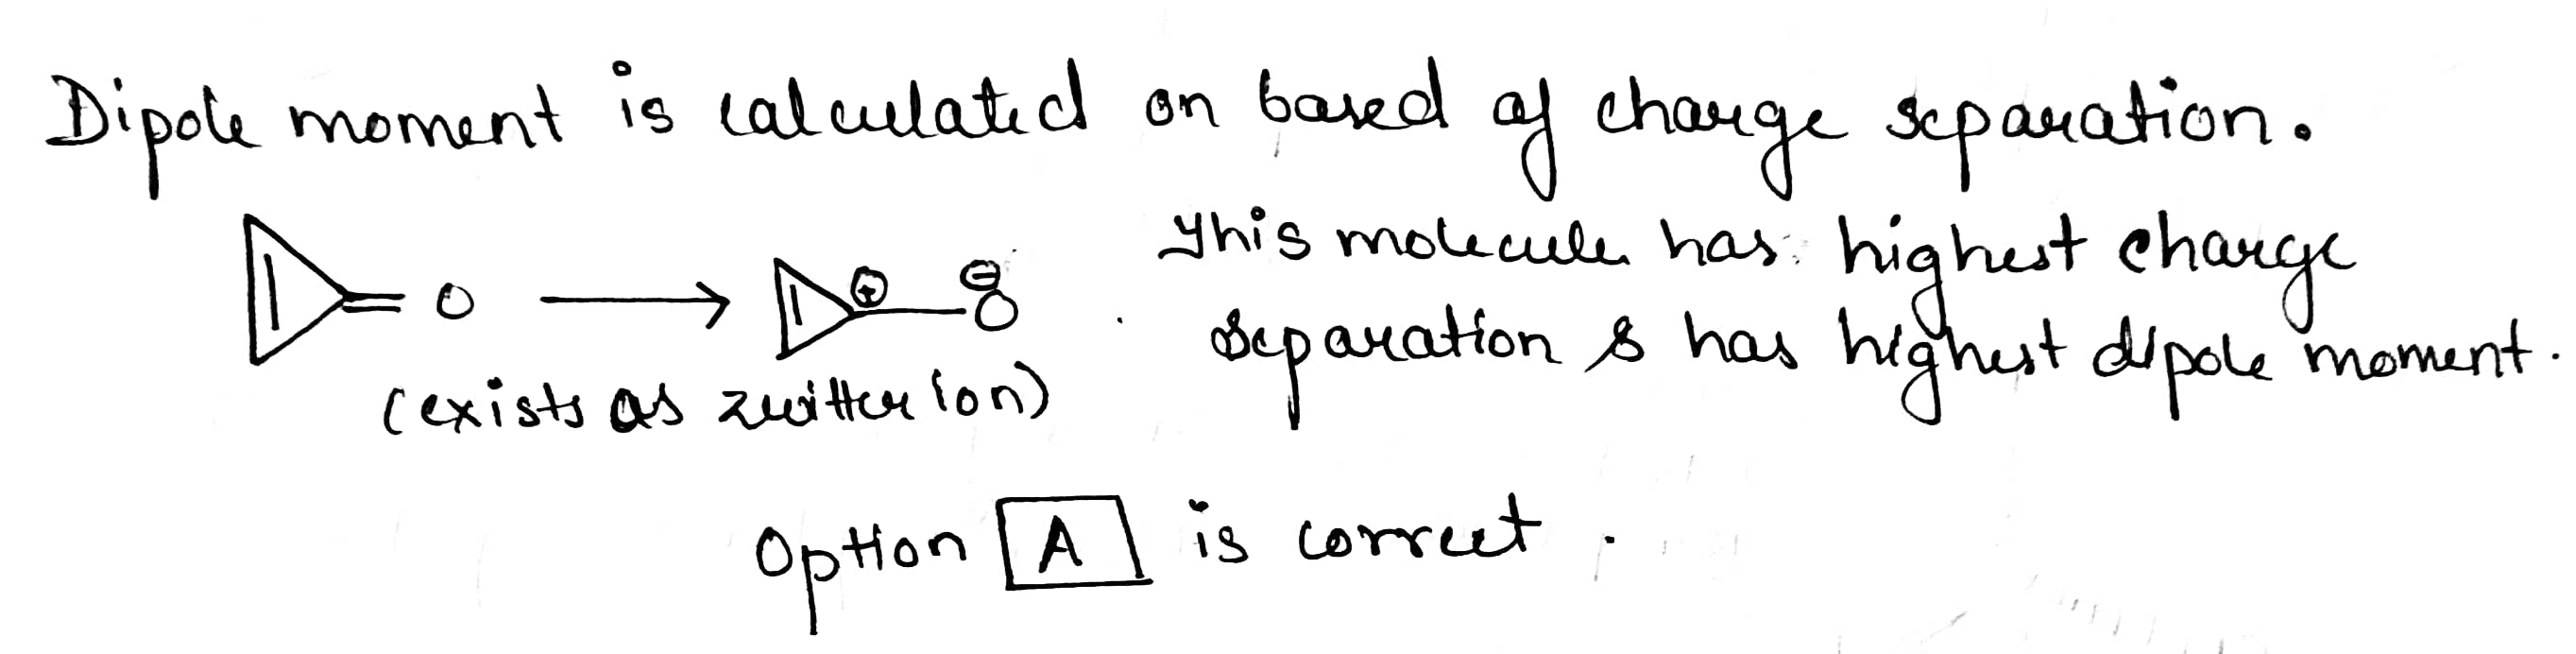 Dipole moment is calculated on based of charge separation.
O
⊕
⊖
O
This molecule has highest charge
separation & has highest dipole moment.
(exists as zwitter ion)
Option A is correct.